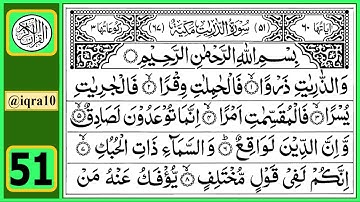 اٰیاتها ٦٠
(٥١) سُوْرَةُ الذّٰرِیٰتِ مَكِّیَّةٌ (٦٧)
رکوعاتها ٣
بِسْمِ اللّٰهِ الرَّحْمٰنِ الرَّحِیْمِ
وَالذّٰرِیٰتِ ذَرْوًا ۙ۝۱ فَالْحٰمِلٰتِ وِقْرًا ۙ۝۲ فَالْجٰرِیٰتِ
یُسْرًا ۙ۝۳ فَالْمُقَسِّمٰتِ اَمْرًا ۙ۝۴ اِنَّمَا تُوْعَدُوْنَ لَصَادِقٌ ۙ۝۵
وَّاِنَّ الدِّیْنَ لَوَاقِعٌ ؕ۝۶ وَالسَّمَآءِ ذَاتِ الْحُبُكِ ۙ۝۷
اِنَّكُمْ لَفِیْ قَوْلٍ مُّخْتَلِفٍ ۙ۝۸ یُّؤْفَكُ عَنْهُ مَنْ
@iqra10
51